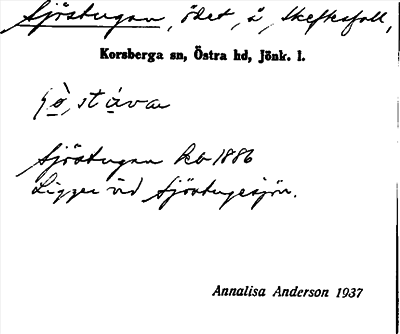 Sjöstugan, ödet, å, Skeftefall,
Korsberga sn, Östra hd, Jönk. l.
Sjöstugan kb 1886
Ligger vid Sjöstugesjön.
Annalisa Anderson 1937